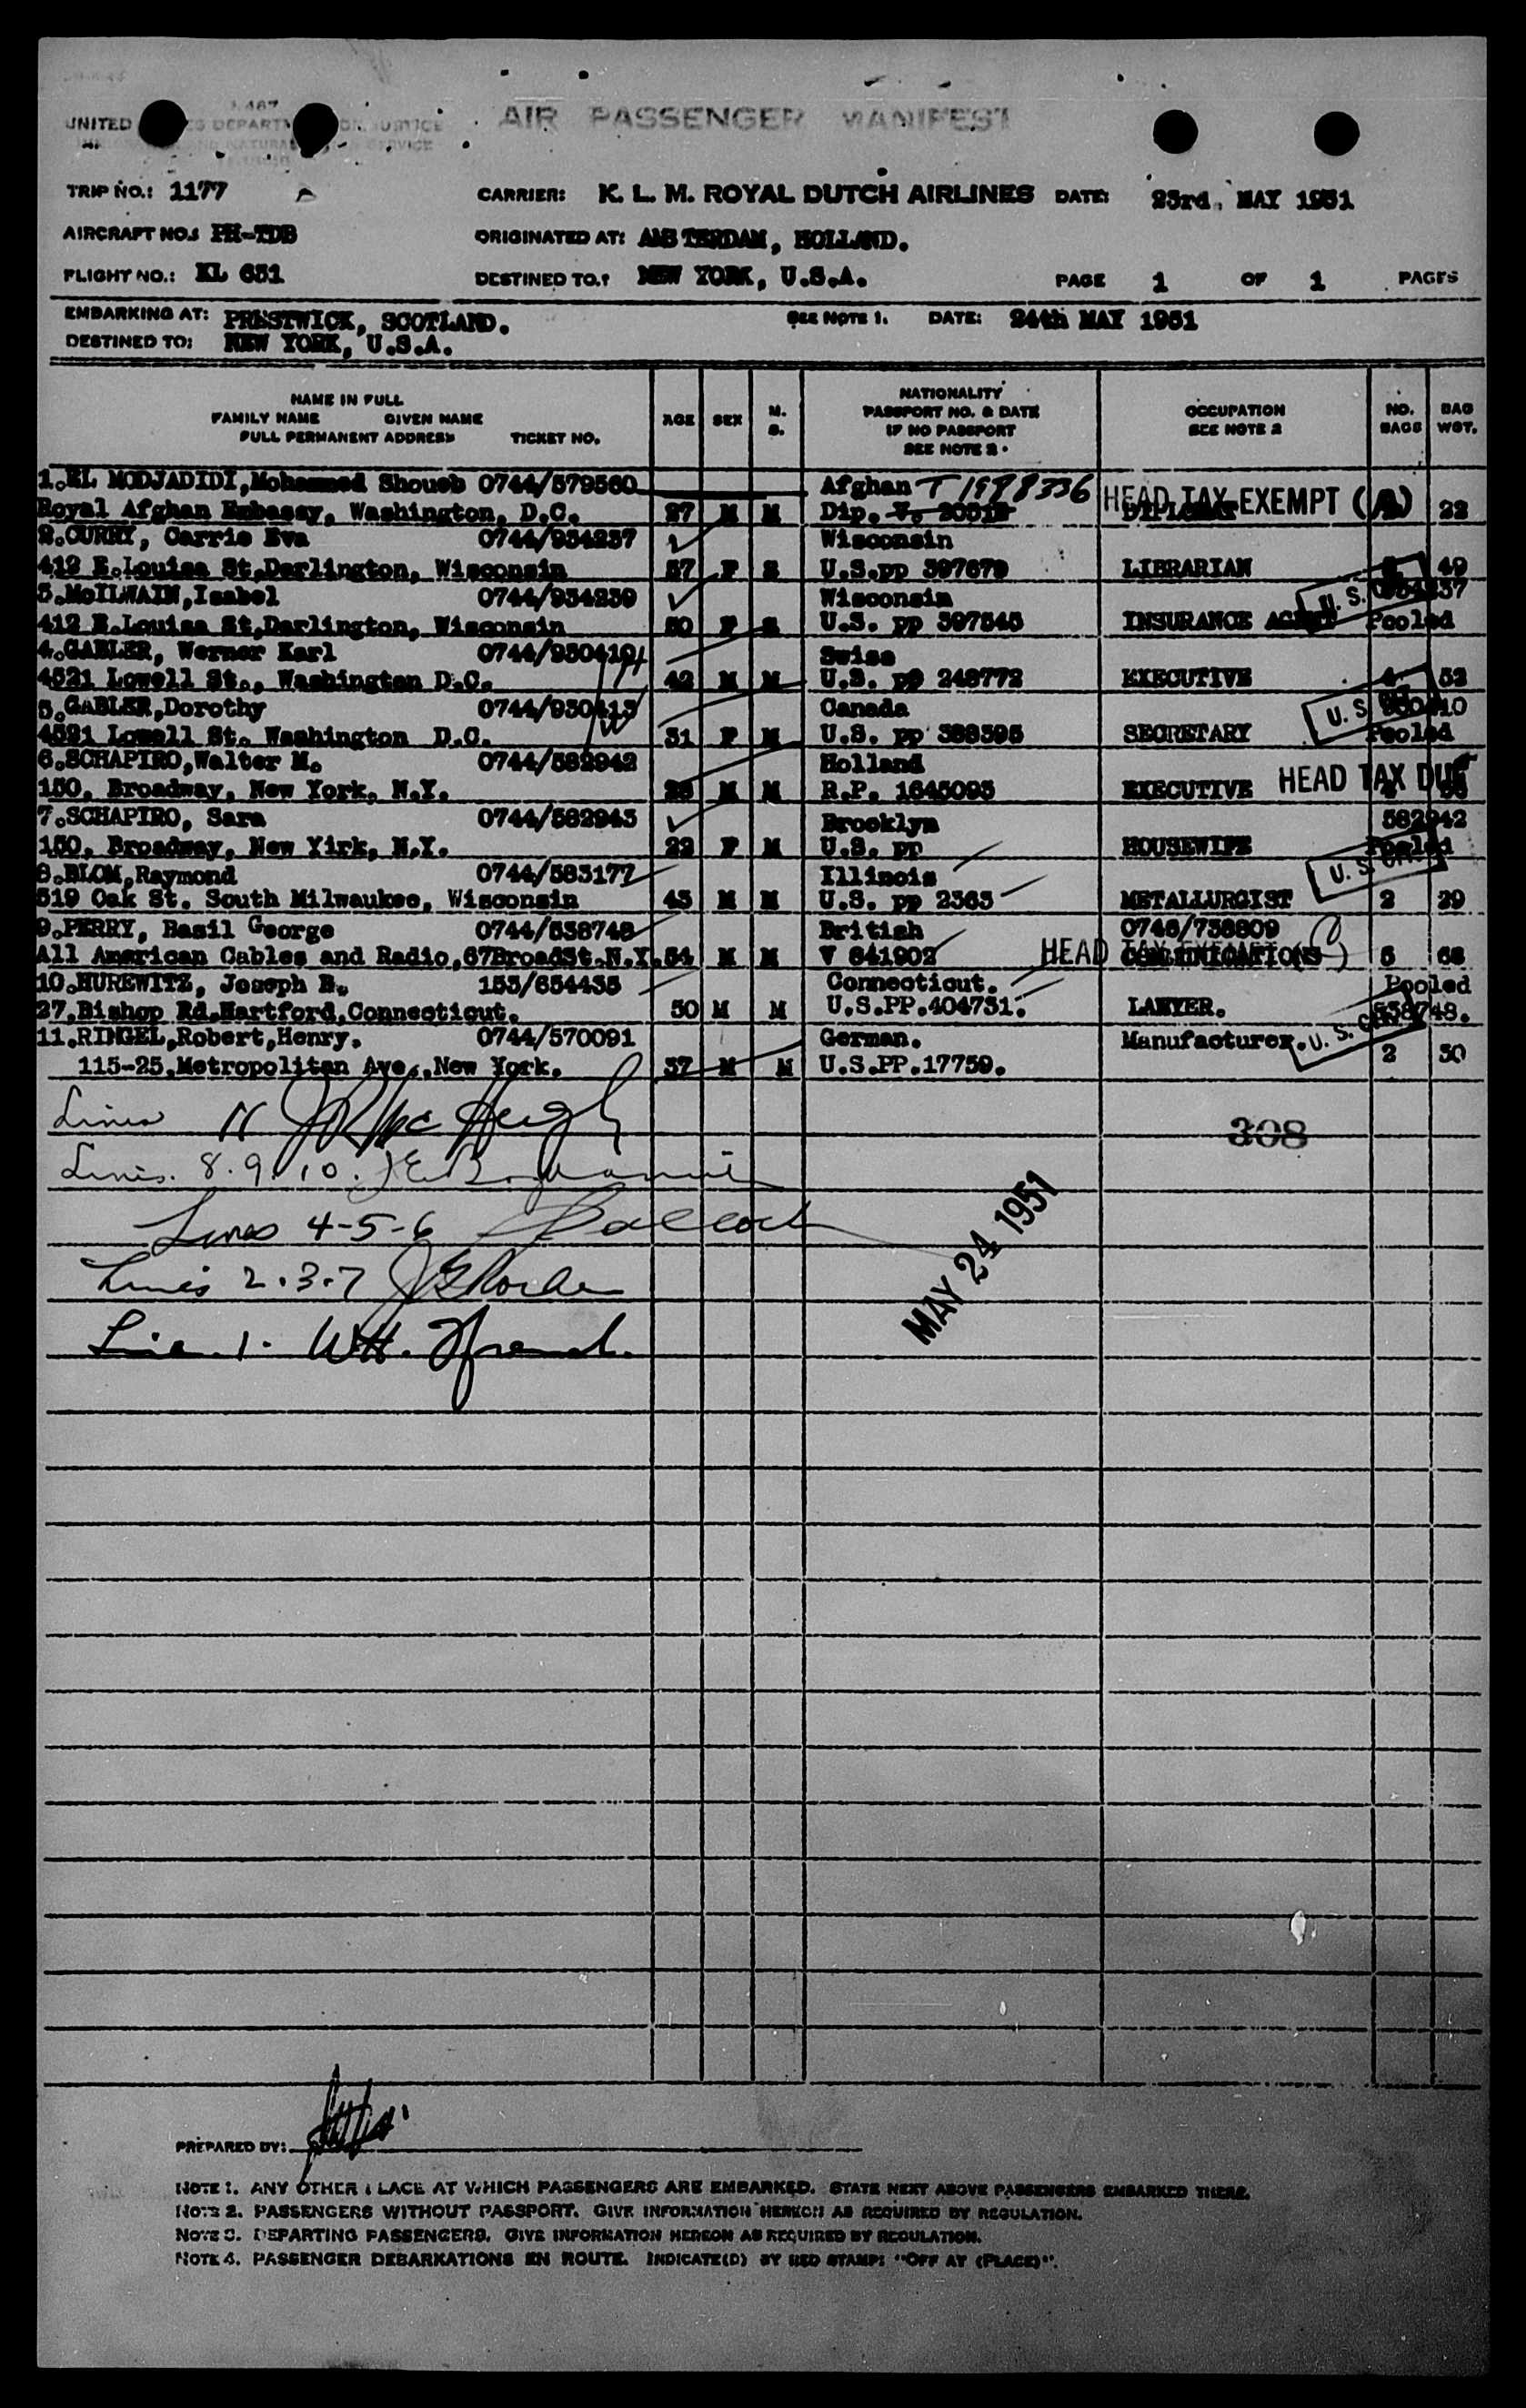 AIR PASSENGER MANIFEST
UNITED DEPARTMENT OF JUSTICE
TRIP NO.: 1177 CARRIER: K. L. M. ROYAL DUTCH AIRLINES DATE: 23rd. MAY 1951
AIRCRAFT NO.: PH-TDB ORIGINATED AT: AMSTERDAM, HOLLAND.
FLIGHT NO.: KL 651 DESTINED TO.: NEW YORK, U.S.A. PAGE 1 OF 1 PAGES
EMBARKING AT: PRESTWICK, SCOTLAND. SEE NOTE 1. DATE: 24th MAY 1951
DESTINED TO: NEW YORK, U.S.A.
NAME IN FULL
FAMILY NAME GIVEN NAME
FULL PERMANENT ADDRESS TICKET NO.
AGE SEX M. S.
NATIONALITY
PASSPORT NO. & DATE
IF NO PASSPORT
SEE NOTE 2.
OCCUPATION
SEE NOTE 2
NO. BAGS
BAG WGT.
1.EL MODJADIDI,Mohammed Shoueb 0744/579560 Afghan T 1998336 HEAD TAX EXEMPT (A)
Royal Afghan Embassy, Washington, D.C. 27 M M Dip. DIPLOMAT 22
2.CURRY, Carrie Eva 0744/934237 Wisconsin
412 E.Louisa St,Darlington, Wisconsin 57 F S U.S.pp 397679 LIBRARIAN 49
3.McILWAIN,Isabel 0744/934239 Wisconsin
412 E.Louisa St,Darlington, Wisconsin 50 F S U.S. pp 397545 INSURANCE AGENT Pooled
4.GABLER, Werner Karl 0744/930410 Swiss
4521 Lowell St., Washington D.C. 42 M M U.S. pp 248772 EXECUTIVE 4 52
5.GABLER,Dorothy 0744/930413 Canada
4521 Lowell St. Washington D.C. 31 F M U.S. pp 388395 SECRETARY Pooled
6.SCHAPIRO,Walter M. 0744/582942 Holland
150, Broadway, New York, N.Y. M M R.P. 1645093 EXECUTIVE HEAD TAX DUE
7.SCHAPIRO, Sara 0744/582943 Brooklyn 582942
150, Broadway, New Yirk, N.Y. 22 F M U.S. pp HOUSEWIFE Pooled
8.BLOM,Raymond 0744/583177 Illinois
519 Oak St. South Milwaukee, Wisconsin 43 M M U.S. pp 2363 METALLURGIST 2 29
9.PERRY, Basil George 0744/538748 British 0746/738809
All American Cables and Radio,67BroadSt.N.Y. 54 M M V 641902 HEAD TAX EXEMPT COMMUNICATIONS 5 68
10.HUREWITZ, Joseph B. 153/654435 Connecticut. Pooled
27,Bishop Rd.Hartford,Connecticut. 50 M M U.S.PP.404731. LAWYER. 538748.
11.RINGEL,Robert,Henry. 0744/570091 German. Manufacturer.
115-25,Metropolitan Ave.,New York. 37 M M U.S.PP.17759. 2 30
Lines 11
308
Lines. 8.9.10.
Lines 4-5-6
MAY 24 1951
Lines 2.3.7
Line 1. WH. French.
PREPARED BY:
NOTE 1. ANY OTHER PLACE AT WHICH PASSENGERS ARE EMBARKED. STATE NEXT ABOVE PASSENGERS EMBARKED THERE.
NOTE 2. PASSENGERS WITHOUT PASSPORT. GIVE INFORMATION HEREON AS REQUIRED BY REGULATION.
NOTE 3. DEPARTING PASSENGERS. GIVE INFORMATION HEREON AS REQUIRED BY REGULATION.
NOTE 4. PASSENGER DEBARKATIONS EN ROUTE. INDICATE(D) BY RED STAMP: "OFF AT (PLACE)".